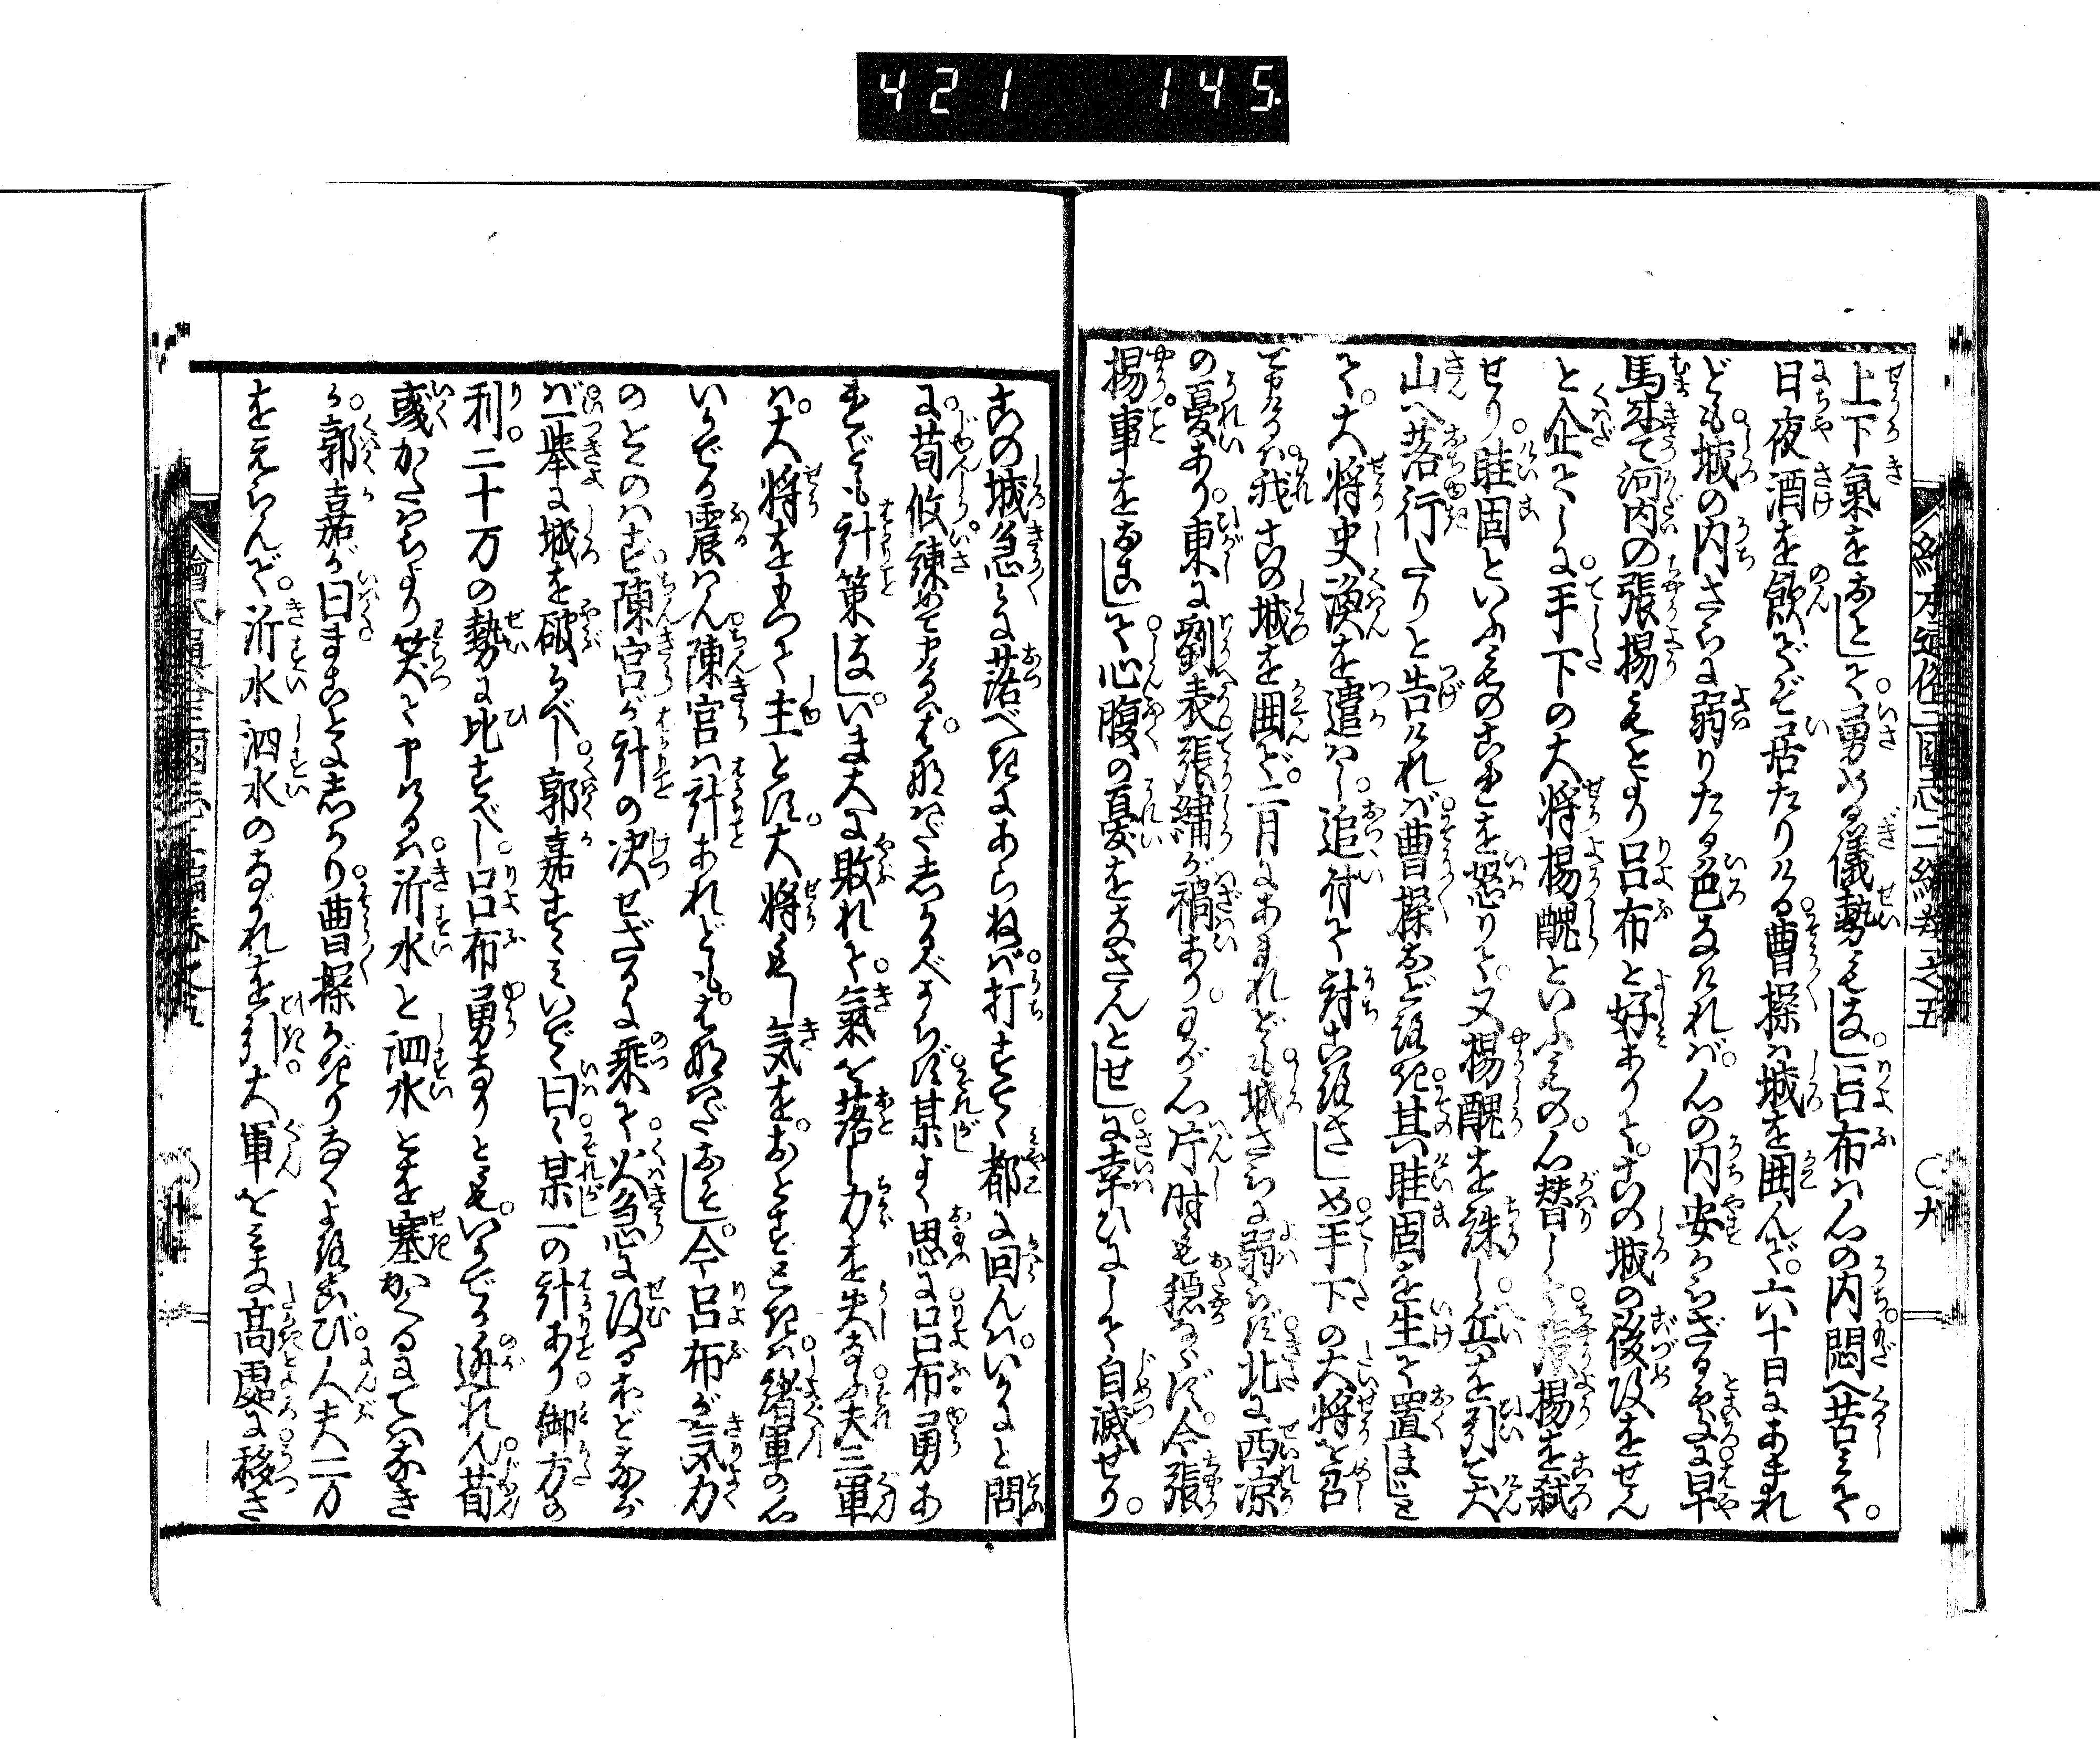 421 145.
繪本通俗三國志二編巻之五 〇九
上下氣をおとして勇める儀勢もなし呂布は心の内悶へ苦みて。
日夜酒を飲でぞ居たりける曹操は城を囲んで。六十日にあまれ
ども城の内さらに弱りたる色なければ。心の内安からざる処に早
馬来て河内の張揚もとより呂布と好ありて。この城の後攻をせん
と企てしに。手下の大将楊醜といふもの。心替して張揚を弑
せり眭固といふものこれを怒りて。又楊醜を誅し兵を引て犬
山へ落行たりと告ければ曹操おどろき其眭固を生て置まじと
て。大将史渙を遣はし。追付て討ころさしめ手下の大将を召
て申けるは我この城を囲で。二月にあまれども城さらに弱らず北に西凉
の憂あり。東に劉表張繍が禍あり。わが心片時も穏ならず。今張
揚事をおこして心腹の憂をなさんとせしに幸ひにして自滅せり。
この城急に落べきにあらねば打すてて都に回んはいかにと問
に荀攸諫めて申けるは。はなはだ志かるべからず某よく思に呂布勇あ
れども計策なし。いま大に敗れて。氣を落し力を失なふ夫三軍
は。大将をもつて主とす。大将もし気を。おとすときは諸軍の心
いかでか震はん陳宮は計あれども。はなはだおそし。今呂布が気力
のとのはず。陳宮が計の决せざるに乗て火急に攻るほどならば
一挙に城を破るべし郭嘉すすみいでて曰く某一の計あり御方の
利。二十万の勢に比すべし。呂布勇なりとも。いかでか遁れん荀
彧かたはらより笑て申けるは。沂水と泗水とを塞かくるにてはなき
か。郭嘉が曰まことに志かり曹操かぎりなくよろこび。人夫二万
をえらんで。沂水泗水のながれを引大軍をみな高處に移さ